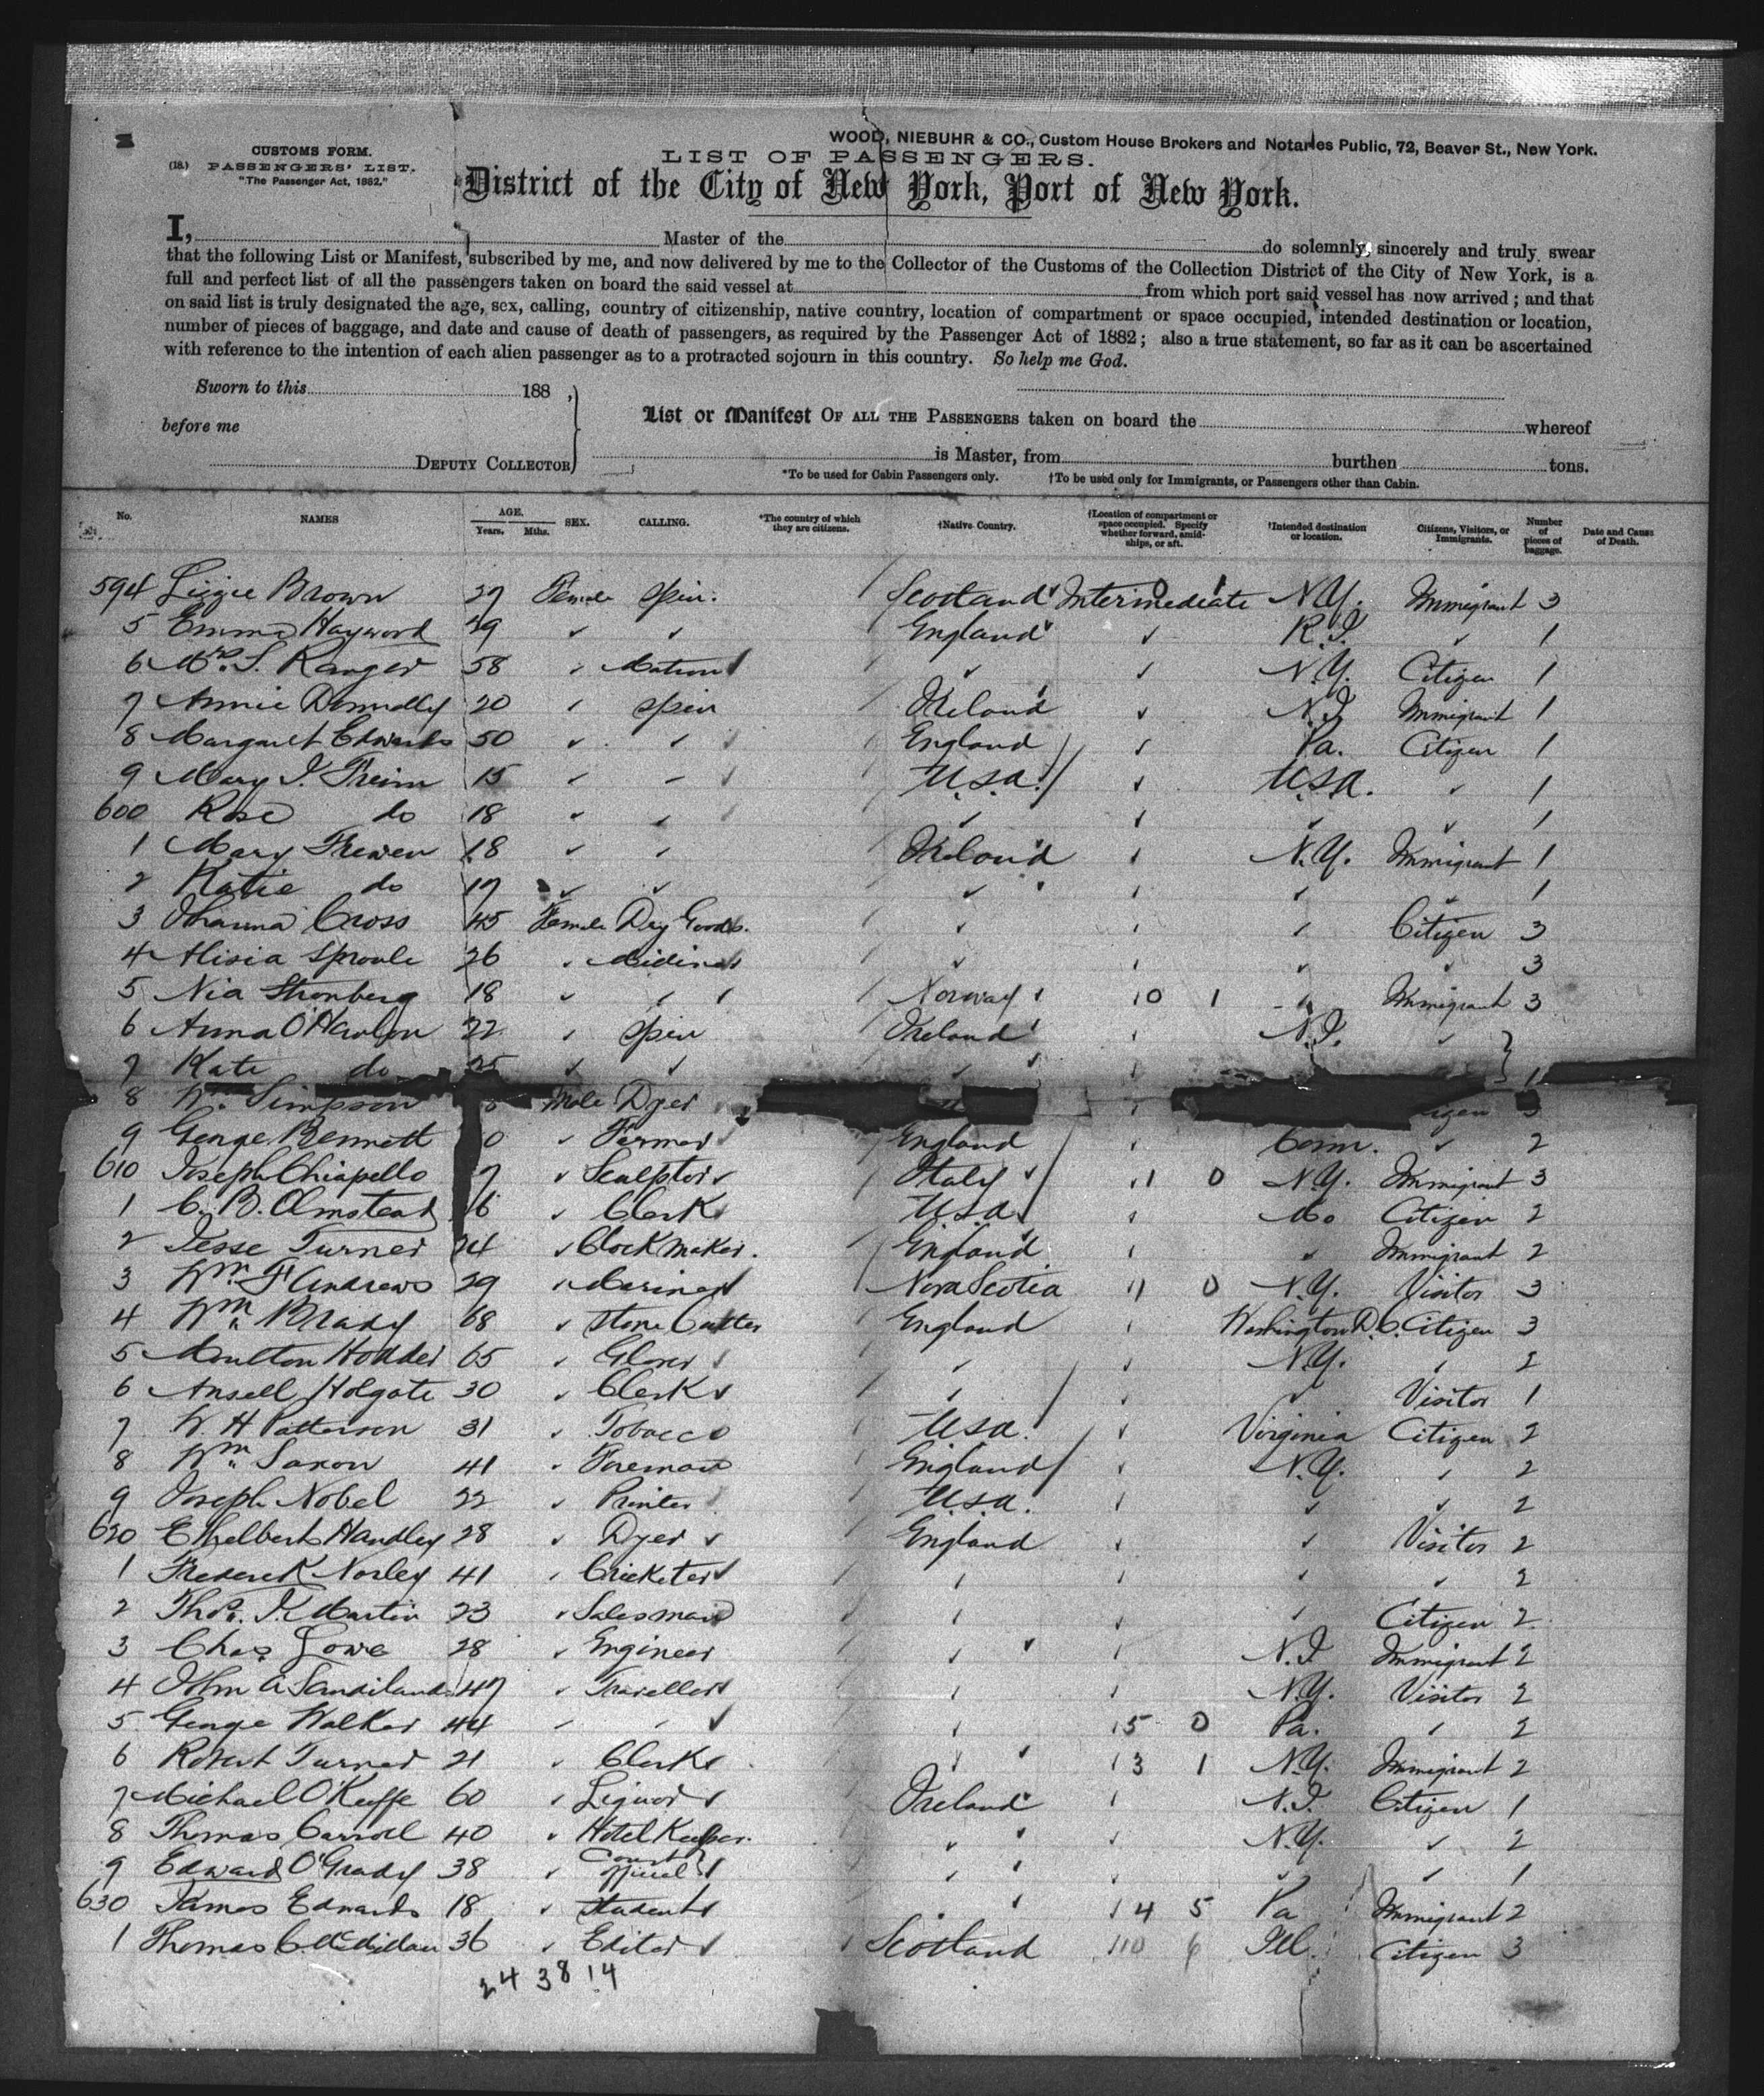 WOOD, NIEBUHR & CO., Custom House Brokers and Notaries Public, 72, Beaver St., New York.
CUSTOMS FORM.
(18.) PASSENGERS' LIST.
"The Passenger Act, 1882."
LIST OF PASSENGERS.
District of the City of New York, Port of New York.
I, Master of the do solemnly, sincerely and truly swear
that the following List or Manifest, subscribed by me, and now delivered by me to the Collector of the Customs of the Collection District of the City of New York, is a
full and perfect list of all the passengers taken on board the said vessel at from which port said vessel has now arrived; and that
on said list is truly designated the age, sex, calling, country of citizenship, native country, location of compartment or space occupied, intended destination or location,
number of pieces of baggage, and date and cause of death of passengers, as required by the Passenger Act of 1882; also a true statement, so far as it can be ascertained
with reference to the intention of each alien passenger as to a protracted sojourn in this country. So help me God.
Sworn to this 188 ,
before me
DEPUTY COLLECTOR
List or Manifest OF ALL THE PASSENGERS taken on board the whereof
is Master, from burthen tons.
*To be used for Cabin Passengers only. †To be used only for Immigrants, or Passengers other than Cabin.
No. NAMES AGE. Years. Mths. SEX. CALLING. *The country of which they are citizens. †Native Country. †Location of compartment or space occupied. Specify whether forward, amidships, or aft. †Intended destination or location. Citizens, Visitors, or Immigrants. Number of pieces of baggage. Date and Cause of Death.
594 Lizzie Brown 27 Female Spin. Scotland Intermediate 0 1 N.Y. Immigrant 3
5 Emma Hayword 29 ✓ ✓ England ✓ R.I. ✓ 1
6 Mrs. S. Ranger 58 ✓ Matron ✓ ✓ N.Y. Citizen 1
7 Annie Donnelly 20 ✓ Spin Ireland ✓ N.J. Immigrant 1
8 Margaret Edwards 50 ✓ ✓ England ✓ Pa. Citizen 1
9 Mary J. 15 ✓ ✓ U.S.A. ✓ U.S.A. ✓ 1
600 Rose do 18 ✓ ✓ ✓ ✓ ✓ ✓ 1
1 Mary Frewen 18 ✓ ✓ Ireland ✓ N.Y. Immigrant 1
2 Katie do 17 ✓ ✓ ✓ ✓ ✓ ✓ 1
3 Johanna Cross 45 Female Dry Goods. ✓ ✓ ✓ Citizen 3
4 Alisia Sproule 26 ✓ ✓ ✓ ✓ ✓ 3
5 Nia Stronberg 18 ✓ ✓ Norway 10 1 ✓ Immigrant 3
6 Anna O'Hanlon 22 ✓ Spin Ireland ✓ N.J. ✓
7 Kate do 25 ✓ ✓ ✓ ✓ 1
8 Simpson Male Dyer ✓ 3
9 George Bennett 0 ✓ Farmer England ✓ Conn. ✓ 2
610 Joseph Chiapello 7 ✓ Sculptor Italy 11 0 N.Y. Immigrant 3
1 C. B. Olmstead 6 ✓ Clerk U.S.A. ✓ Mo Citizen 2
2 Jesse Turner 24 ✓ Clock Maker. England ✓ ✓ Immigrant 2
3 Wm. H Andrews 29 ✓ Mariner Nova Scotia 11 0 N.Y. Visitor 3
4 Wm. Brady 68 ✓ Stone Cutter England ✓ Washington D.C. Citizen 3
5 Moulton Hodder 65 ✓ Glover ✓ ✓ N.Y. ✓ 2
6 Ansell Holgate 30 ✓ Clerk ✓ ✓ ✓ Visitor 1
7 W. H Patterson 31 ✓ Tobacco U.S.A. ✓ Virginia Citizen 2
8 Wm. Saxon 41 ✓ Foreman England ✓ N.Y. ✓ 2
9 Joseph Nobel 22 ✓ Printer U.S.A. ✓ ✓ ✓ 2
620 Ethelbert Handley 28 ✓ Dyer England ✓ ✓ Visitor 2
1 Frederick Norley 41 ✓ Cricketer ✓ ✓ ✓ ✓ 2
2 Thos. J. Martin 23 ✓ Salesman ✓ ✓ ✓ Citizen 2
3 Chas. Lowe 28 ✓ Engineer ✓ ✓ N.J. Immigrant 2
4 John A Sandilands 47 ✓ Traveller ✓ ✓ N.Y. Visitor 2
5 George Walker 44 ✓ ✓ ✓ 15 0 Pa. ✓ 2
6 Robert Turner 21 ✓ Clerk ✓ 13 1 N.Y. Immigrant 2
7 Michael O'Keeffe 60 ✓ Liquor Ireland ✓ N.J. Citizen 1
8 Thomas Carroll 40 ✓ Hotel Keeper. ✓ ✓ N.Y. ✓ 2
9 Edward O'Grady 38 ✓ Court official ✓ ✓ ✓ ✓ 1
630 James Edwards 18 ✓ Student ✓ 14 5 Pa Immigrant 2
1 Thomas C. McMillan 36 ✓ Editor Scotland 110 6 Ill. Citizen 3
24 38 14